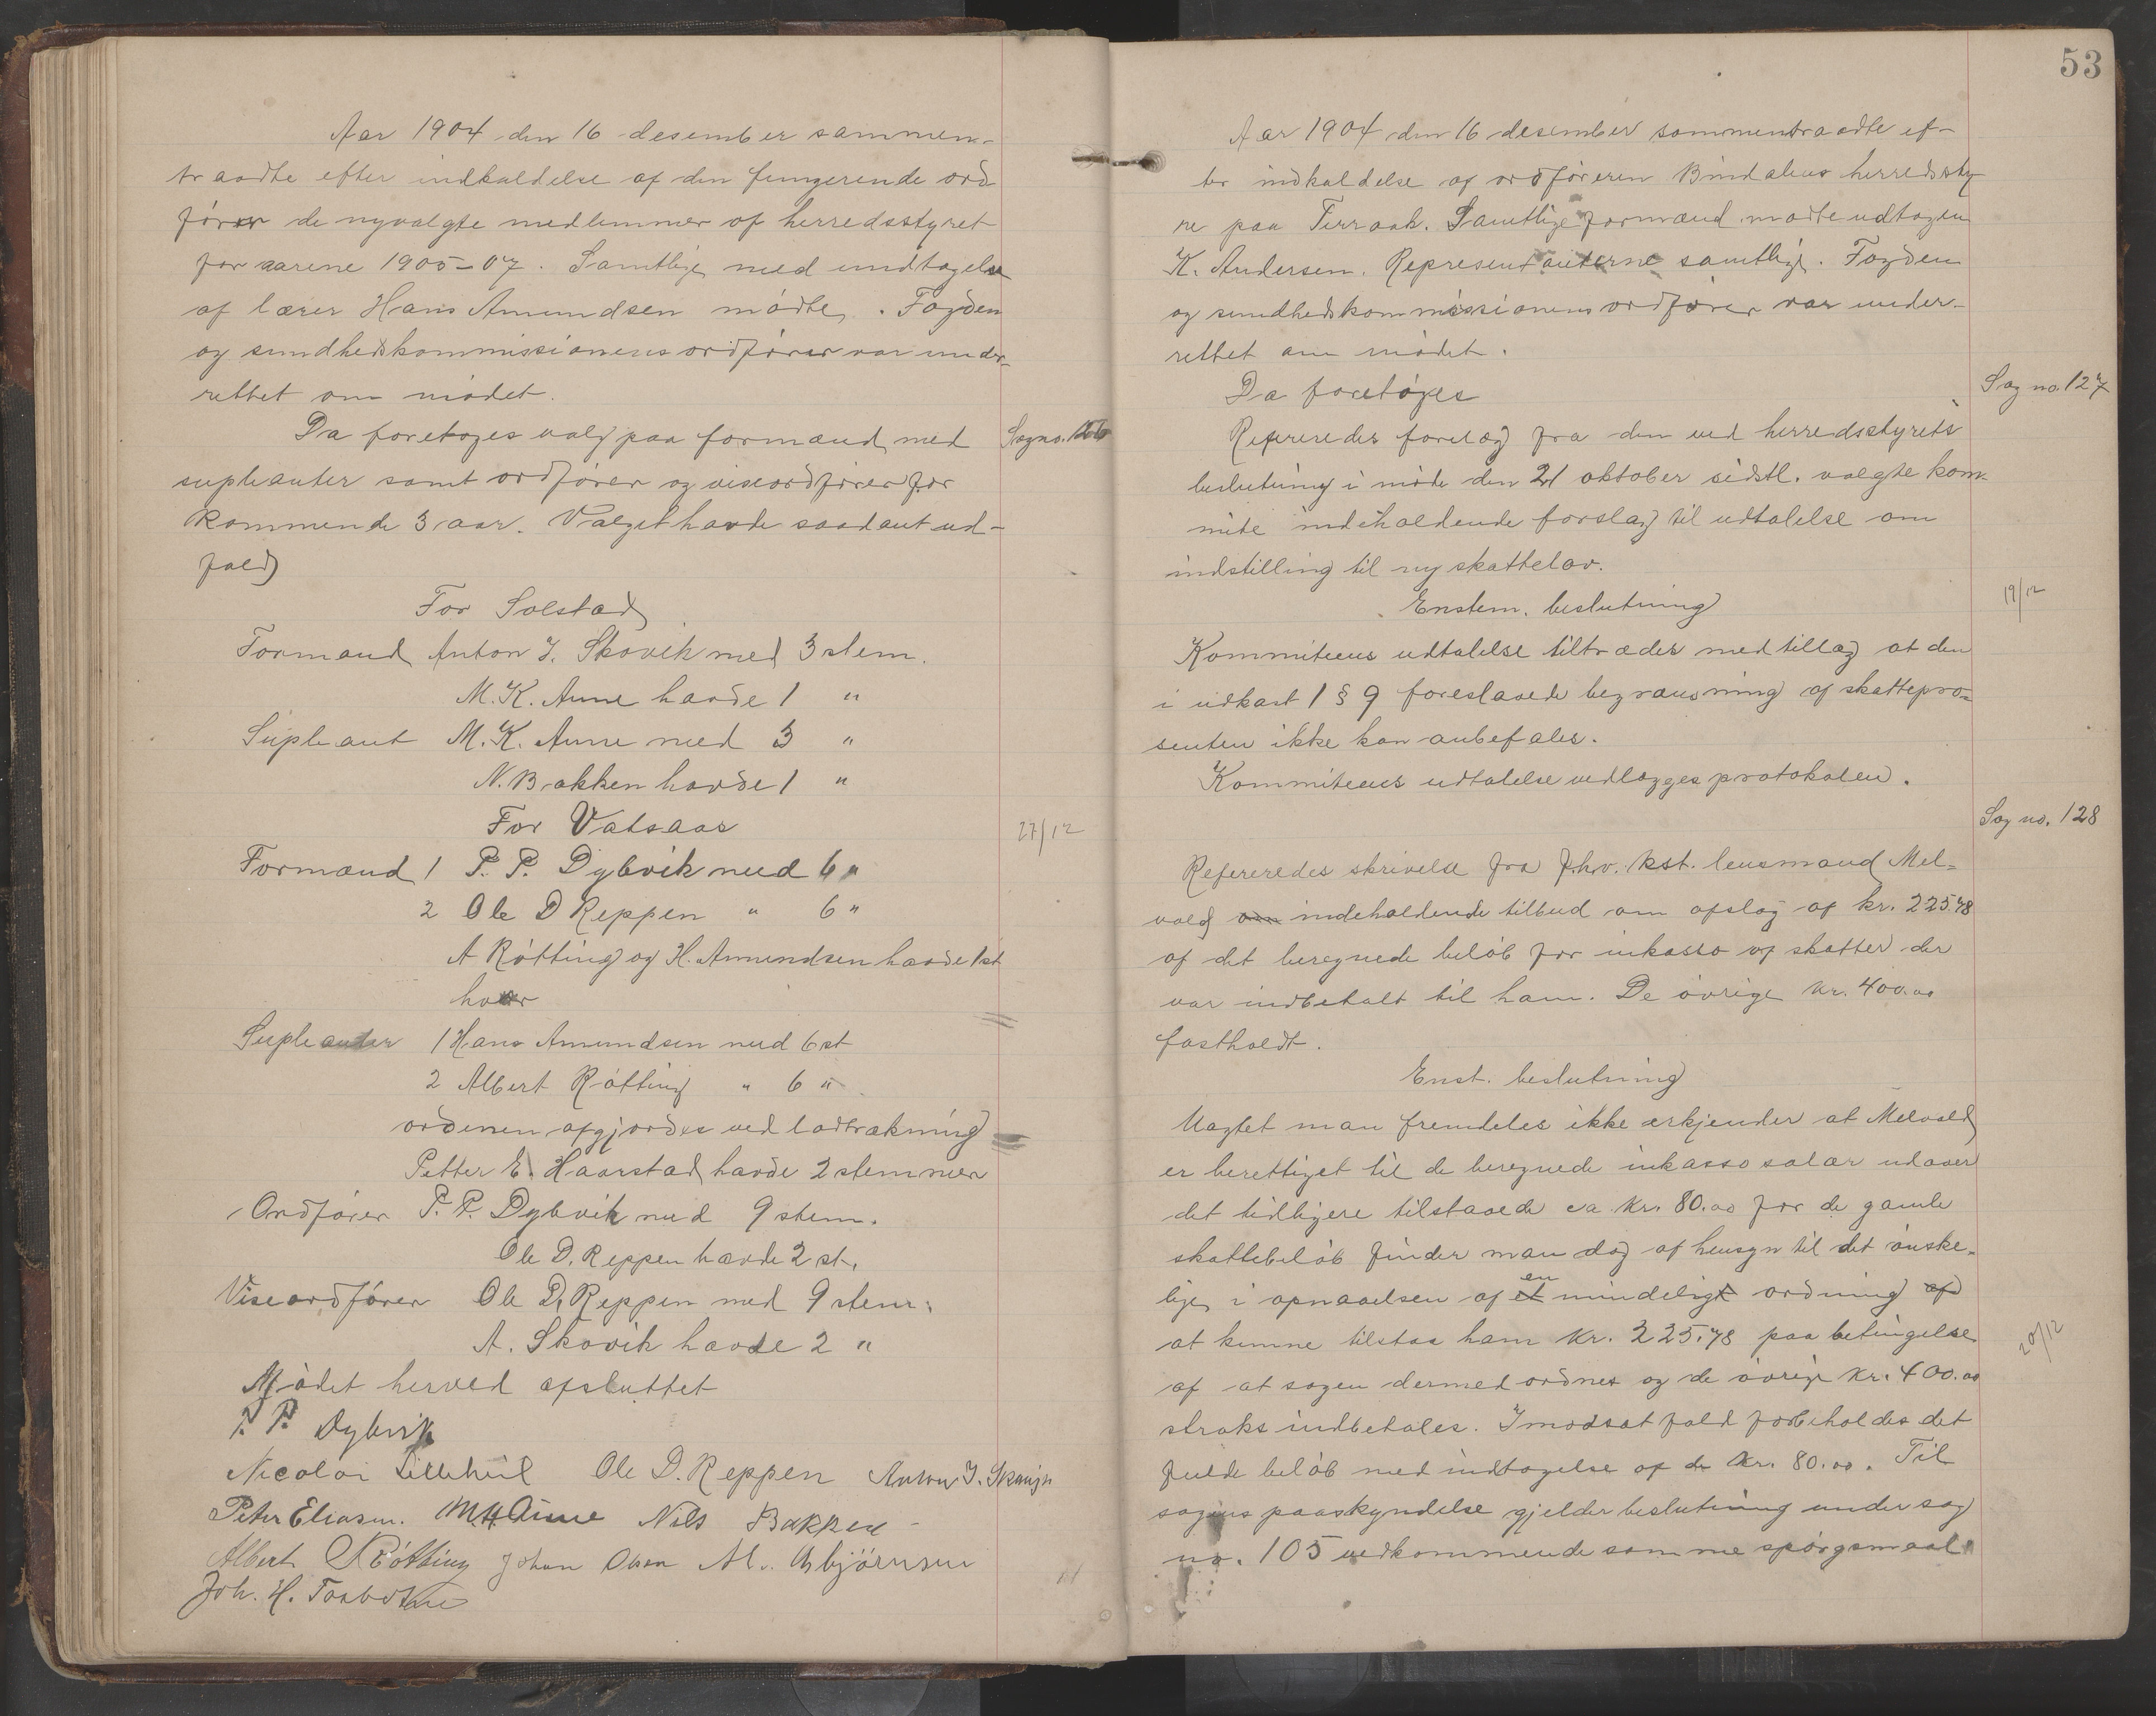 Aar 1904 den 16 desember sammen-
traadte efter indkaldelse af den fungerende ord
fører de nyvalgte medlemmer af herredsstyret
for aarene 1905-07. Samtlige med undtagelse
af lærer Hans Amundsen mødte. Fogden
og sundhedskommissionens ordfører var under-
rettet om mødet.
Da foretoges valg paa formænd med
Sag no. 126
supleanter samt ordfører og viseordfører for
kommende 3 aar. Valget havde saadant ud-
fald
For Solstad
Formand Anton J. Skovik med 3 stem.
M. K. Aune havde 1 "
Supleant M. K. Aune med 3 "
N. Bakken havde 1 "
For Vatsaas
27/12
Formænd 1 P. P. Dybvik med 6 "
2 Ole D Reppen " 6 "
A Røtting og H. Amundsen havde 1 st
hver
Supleanter 1 Hans Amundsen med 6 st
2 Albert Røtting " 6 "
ordenen afgjordes ved lodtrækning
Petter E. Haarstad havde 2 stemmer
Ordfører P. P. Dybvik med 9 stem.
Ole D. Reppen havde 2 st.
Viseordfører Ole D. Reppen med 9 stem.
A. Skovik havde 2 "
Mødet herved afsluttet
P. P. Dybvik
Nicolai Lilleheil Ole D. Reppen Anton J.
Peter Eliasen. M K Aune Nils Bakken
Albert Røtting Johan Olsen Asbjörnsen
Joh. H.
53
Aar 1904 den 16 desember sammentraadte ef-
ter indkaldelse af ordføreren Bindalens herredssty
re paa Terraak. Samtlige formænd mødte undtagen
K. Andersen. Representanterne samtlige. Fogden
og sundhedskommissionens ordfører var under-
rettet om mødet.
Da foretoges
Sag no. 127
Refereredes forelæg fra den ved herredsstyrets
beslutning i møde den 21 oktober sidstl. valgte kom-
mite indeholdende forslag til udtalelse om
indstilling til ny skattelov.
19/12
Enstem. beslutning
Kommiteens udtalelse tiltrædes med tillæg at den
i udkast 1 § 9 foreslaaede begrænsning af skattepro-
senten ikke kan anbefales.
Kommiteens udtalelse vedlægges protokolen.
Sag no. 128
Refereredes skrivelse fra fhv. kst. lensmand Mel-
vold om indeholdende tilbud om afslag af kr. 225.78
af det beregnede beløb for inkasso af skatter der
var indbetalt til ham. De øvrige kr. 400.00
fastholdt.
Enst. beslutning
Uagtet man fremdeles ikke erkjender at Melvold
er berettiget til de beregnede inkassosalær udover
det tidligere tilstaaede ca kr. 80.00 for de gamle
skattebeløb finder man dog af hensyn til det ønske-
lige i opnaaelsen af et en mindeligt ordning af
at kunne tilstaa ham kr. 225.78 paa betingelse
20/12
af at sagen dermed ordnes og de øvrige kr. 400.00
straks indbetales. I modsat fald forbeholdes det
fulde beløb med undtagelse af de kr. 80.00. Til
sagens paaskyndelse gjelder beslutning under sag
no. 105 vedkommende samme spørgsmaal.